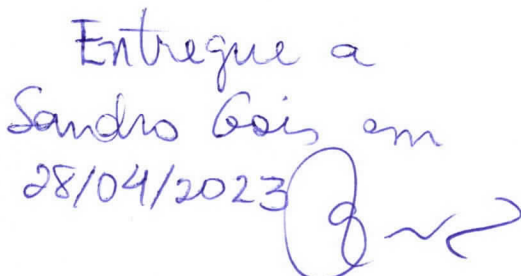 Entregue a
Sandro Gois em
28/04/2023